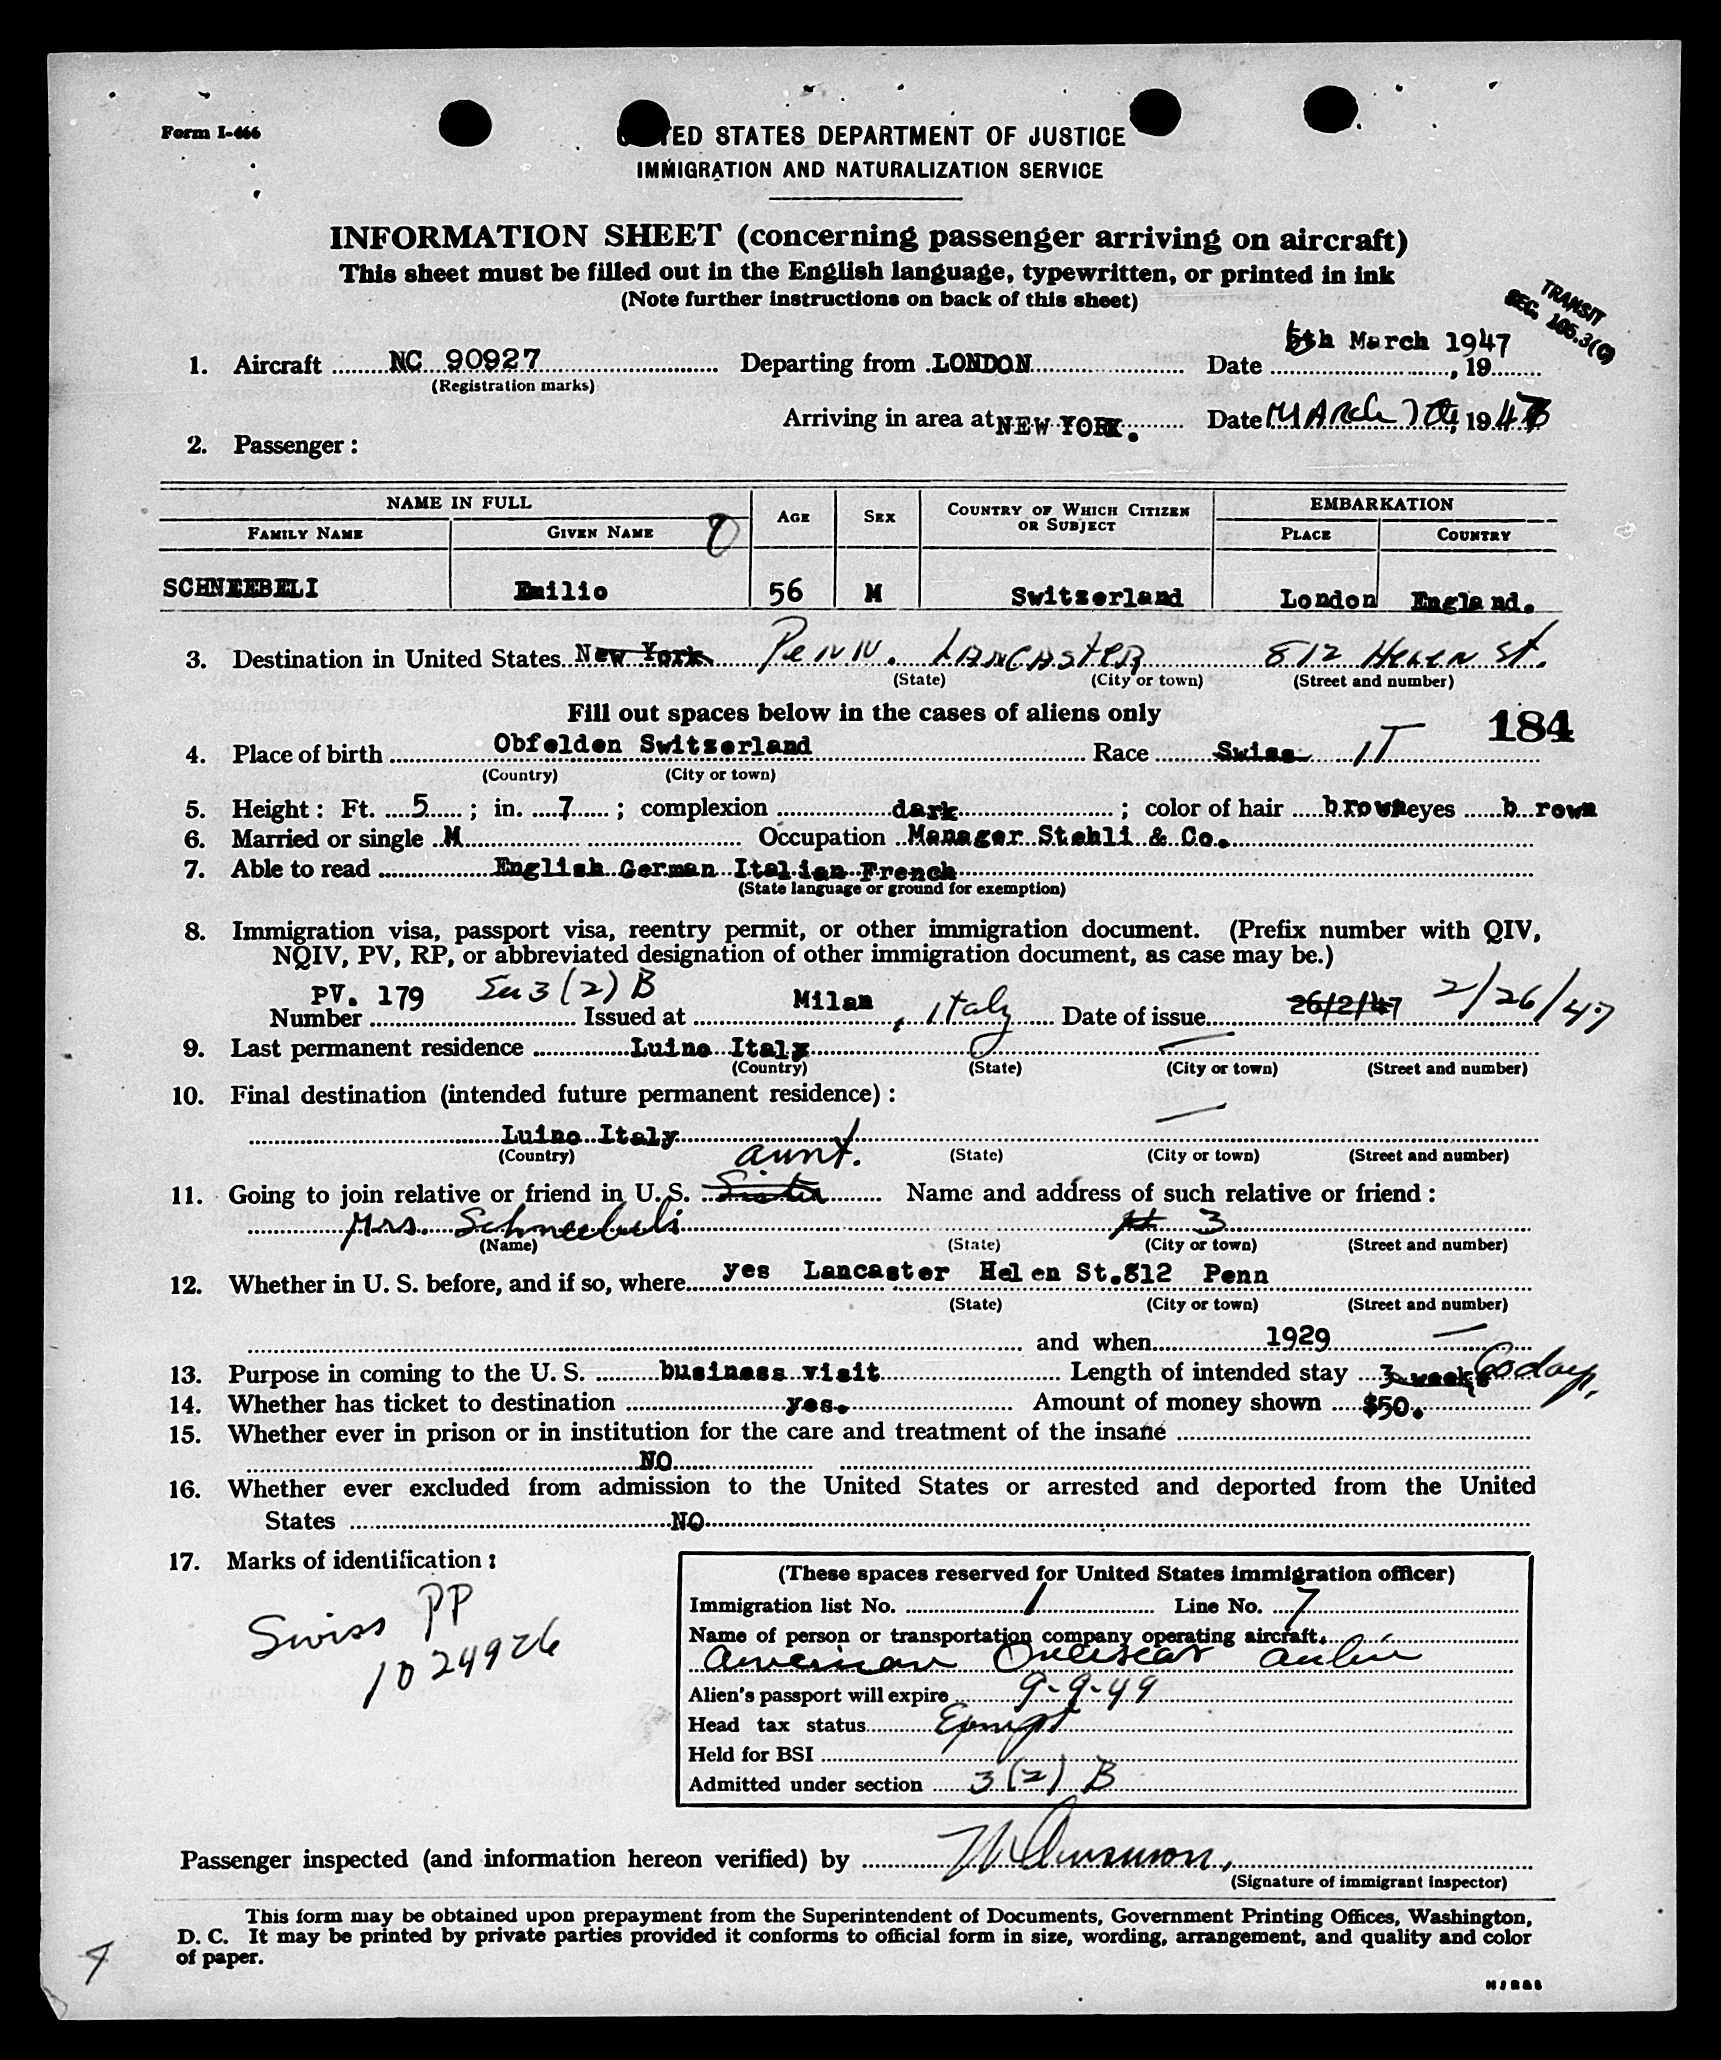 Form I-466
UNITED STATES DEPARTMENT OF JUSTICE
IMMIGRATION AND NATURALIZATION SERVICE
INFORMATION SHEET (concerning passenger arriving on aircraft)
This sheet must be filled out in the English language, typewritten, or printed in ink
(Note further instructions on back of this sheet)
TRANSIT
SEC. 165.3(G)
1. Aircraft NC 90927 Departing from LONDON Date 5th March 1947, 19
(Registration marks)
Arriving in area at NEW YORK. Date MARch 7th, 1947
2. Passenger:
NAME IN FULL AGE SEX COUNTRY OF WHICH CITIZEN OR SUBJECT EMBARKATION
FAMILY NAME GIVEN NAME PLACE COUNTRY
SCHNEEBELI Emilio 56 M Switzerland London England.
3. Destination in United States New York Penn. LANCASTER 812 Helen St.
(State) (City or town) (Street and number)
Fill out spaces below in the cases of aliens only
184
4. Place of birth Obfelden Switzerland Race Swiss IT
(Country) (City or town)
5. Height: Ft. 5; in. 7; complexion dark; color of hair brown eyes brown
6. Married or single M Occupation Manager Stehli & Co.
7. Able to read English German Italian French
(State language or ground for exemption)
8. Immigration visa, passport visa, reentry permit, or other immigration document. (Prefix number with QIV,
NQIV, PV, RP, or abbreviated designation of other immigration document, as case may be.)
Number PV. 179 Sec 3(2)B Issued at Milan, Italy Date of issue 26/2/47 2/26/47
9. Last permanent residence Luino Italy
(Country) (State) (City or town) (Street and number)
10. Final destination (intended future permanent residence):
Luino Italy
(Country) (State) (City or town) (Street and number)
aunt.
11. Going to join relative or friend in U. S. Sister Name and address of such relative or friend:
Mrs. Schneebeli # 3
(Name) (State) (City or town) (Street and number)
12. Whether in U. S. before, and if so, where yes Lancaster Helen St.812 Penn
(State) (City or town) (Street and number)
and when 1929
13. Purpose in coming to the U. S. business visit Length of intended stay 3 weeks 60 days.
14. Whether has ticket to destination yes. Amount of money shown $50.
15. Whether ever in prison or in institution for the care and treatment of the insane
NO
16. Whether ever excluded from admission to the United States or arrested and deported from the United
States NO
17. Marks of identification:
Swiss PP
1024926
(These spaces reserved for United States immigration officer)
Immigration list No. 1 Line No. 7
Name of person or transportation company operating aircraft.
American Overseas Airline
Alien's passport will expire 9-9-49
Head tax status Exempt
Held for BSI
Admitted under section 3(2) B
Passenger inspected (and information hereon verified) by
(Signature of immigrant inspector)
This form may be obtained upon prepayment from the Superintendent of Documents, Government Printing Offices, Washington,
D. C. It may be printed by private parties provided it conforms to official form in size, wording, arrangement, and quality and color
of paper.